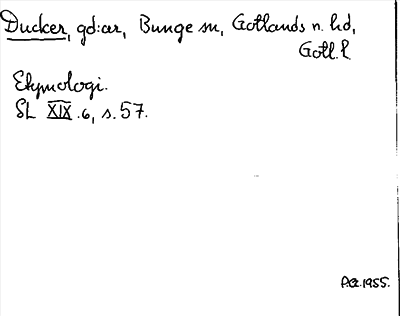 Ducker, gd:ar, Bunge sn, Gotlands n. hd,
Gotl. l
Etymologi.
SL XIX.6, s. 57.
1955.